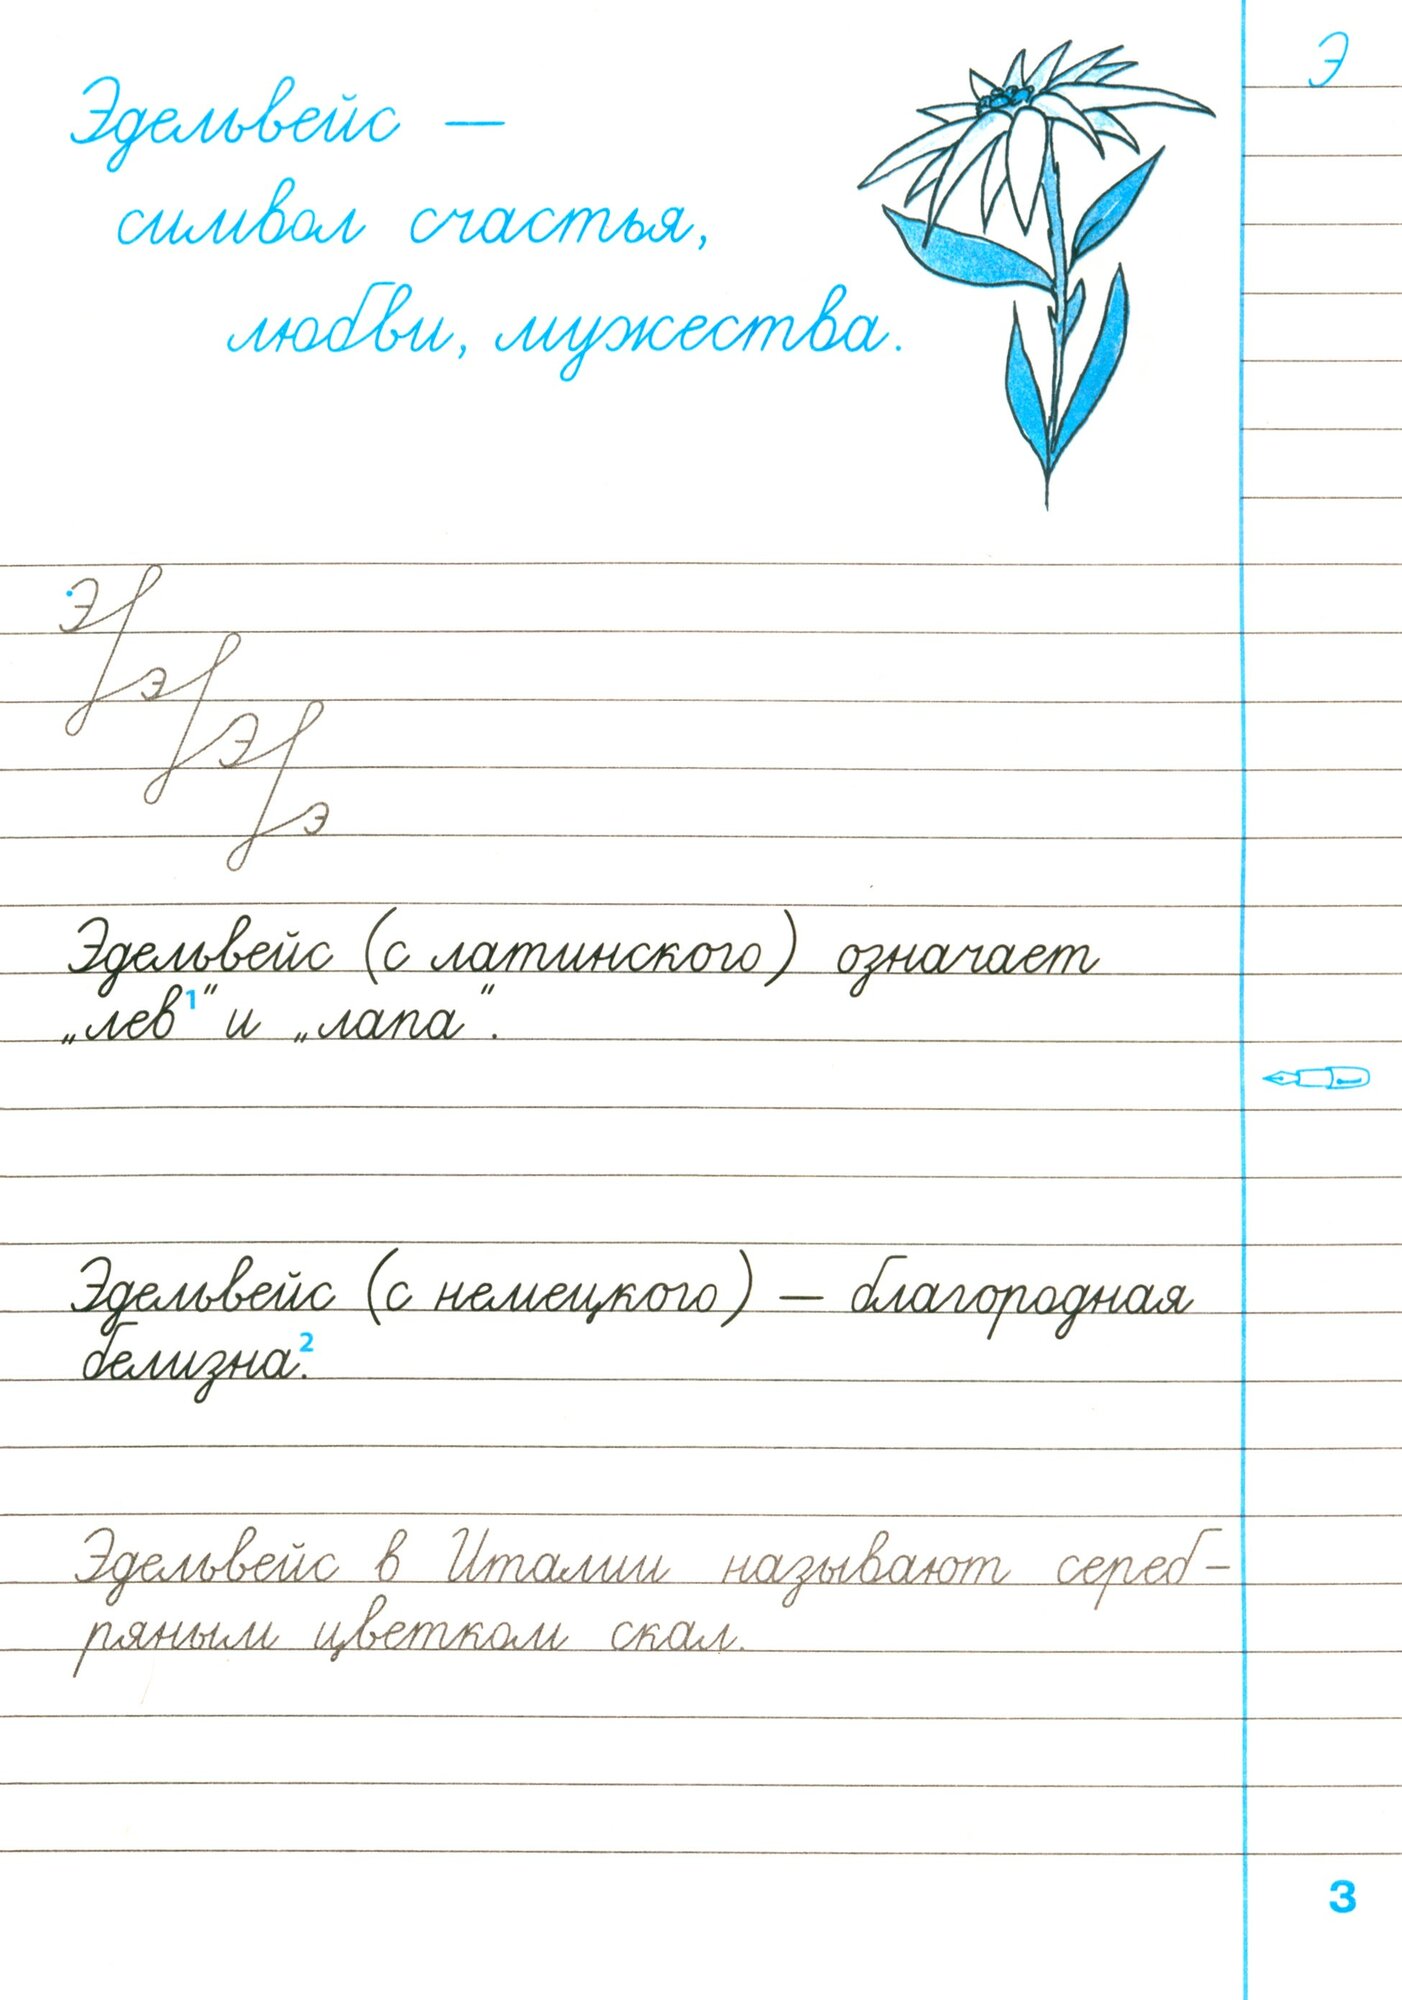 Э
Эдельвейс —
символ счастья,
любви, мужества.
Э
э
Э
э
Эдельвейс (с латинского) означает
„лев¹“ и „лапа“.
Эдельвейс (с немецкого) — благородная
белизна².
Эдельвейс в Италии называют сереб-
ряным цветком скал.
3